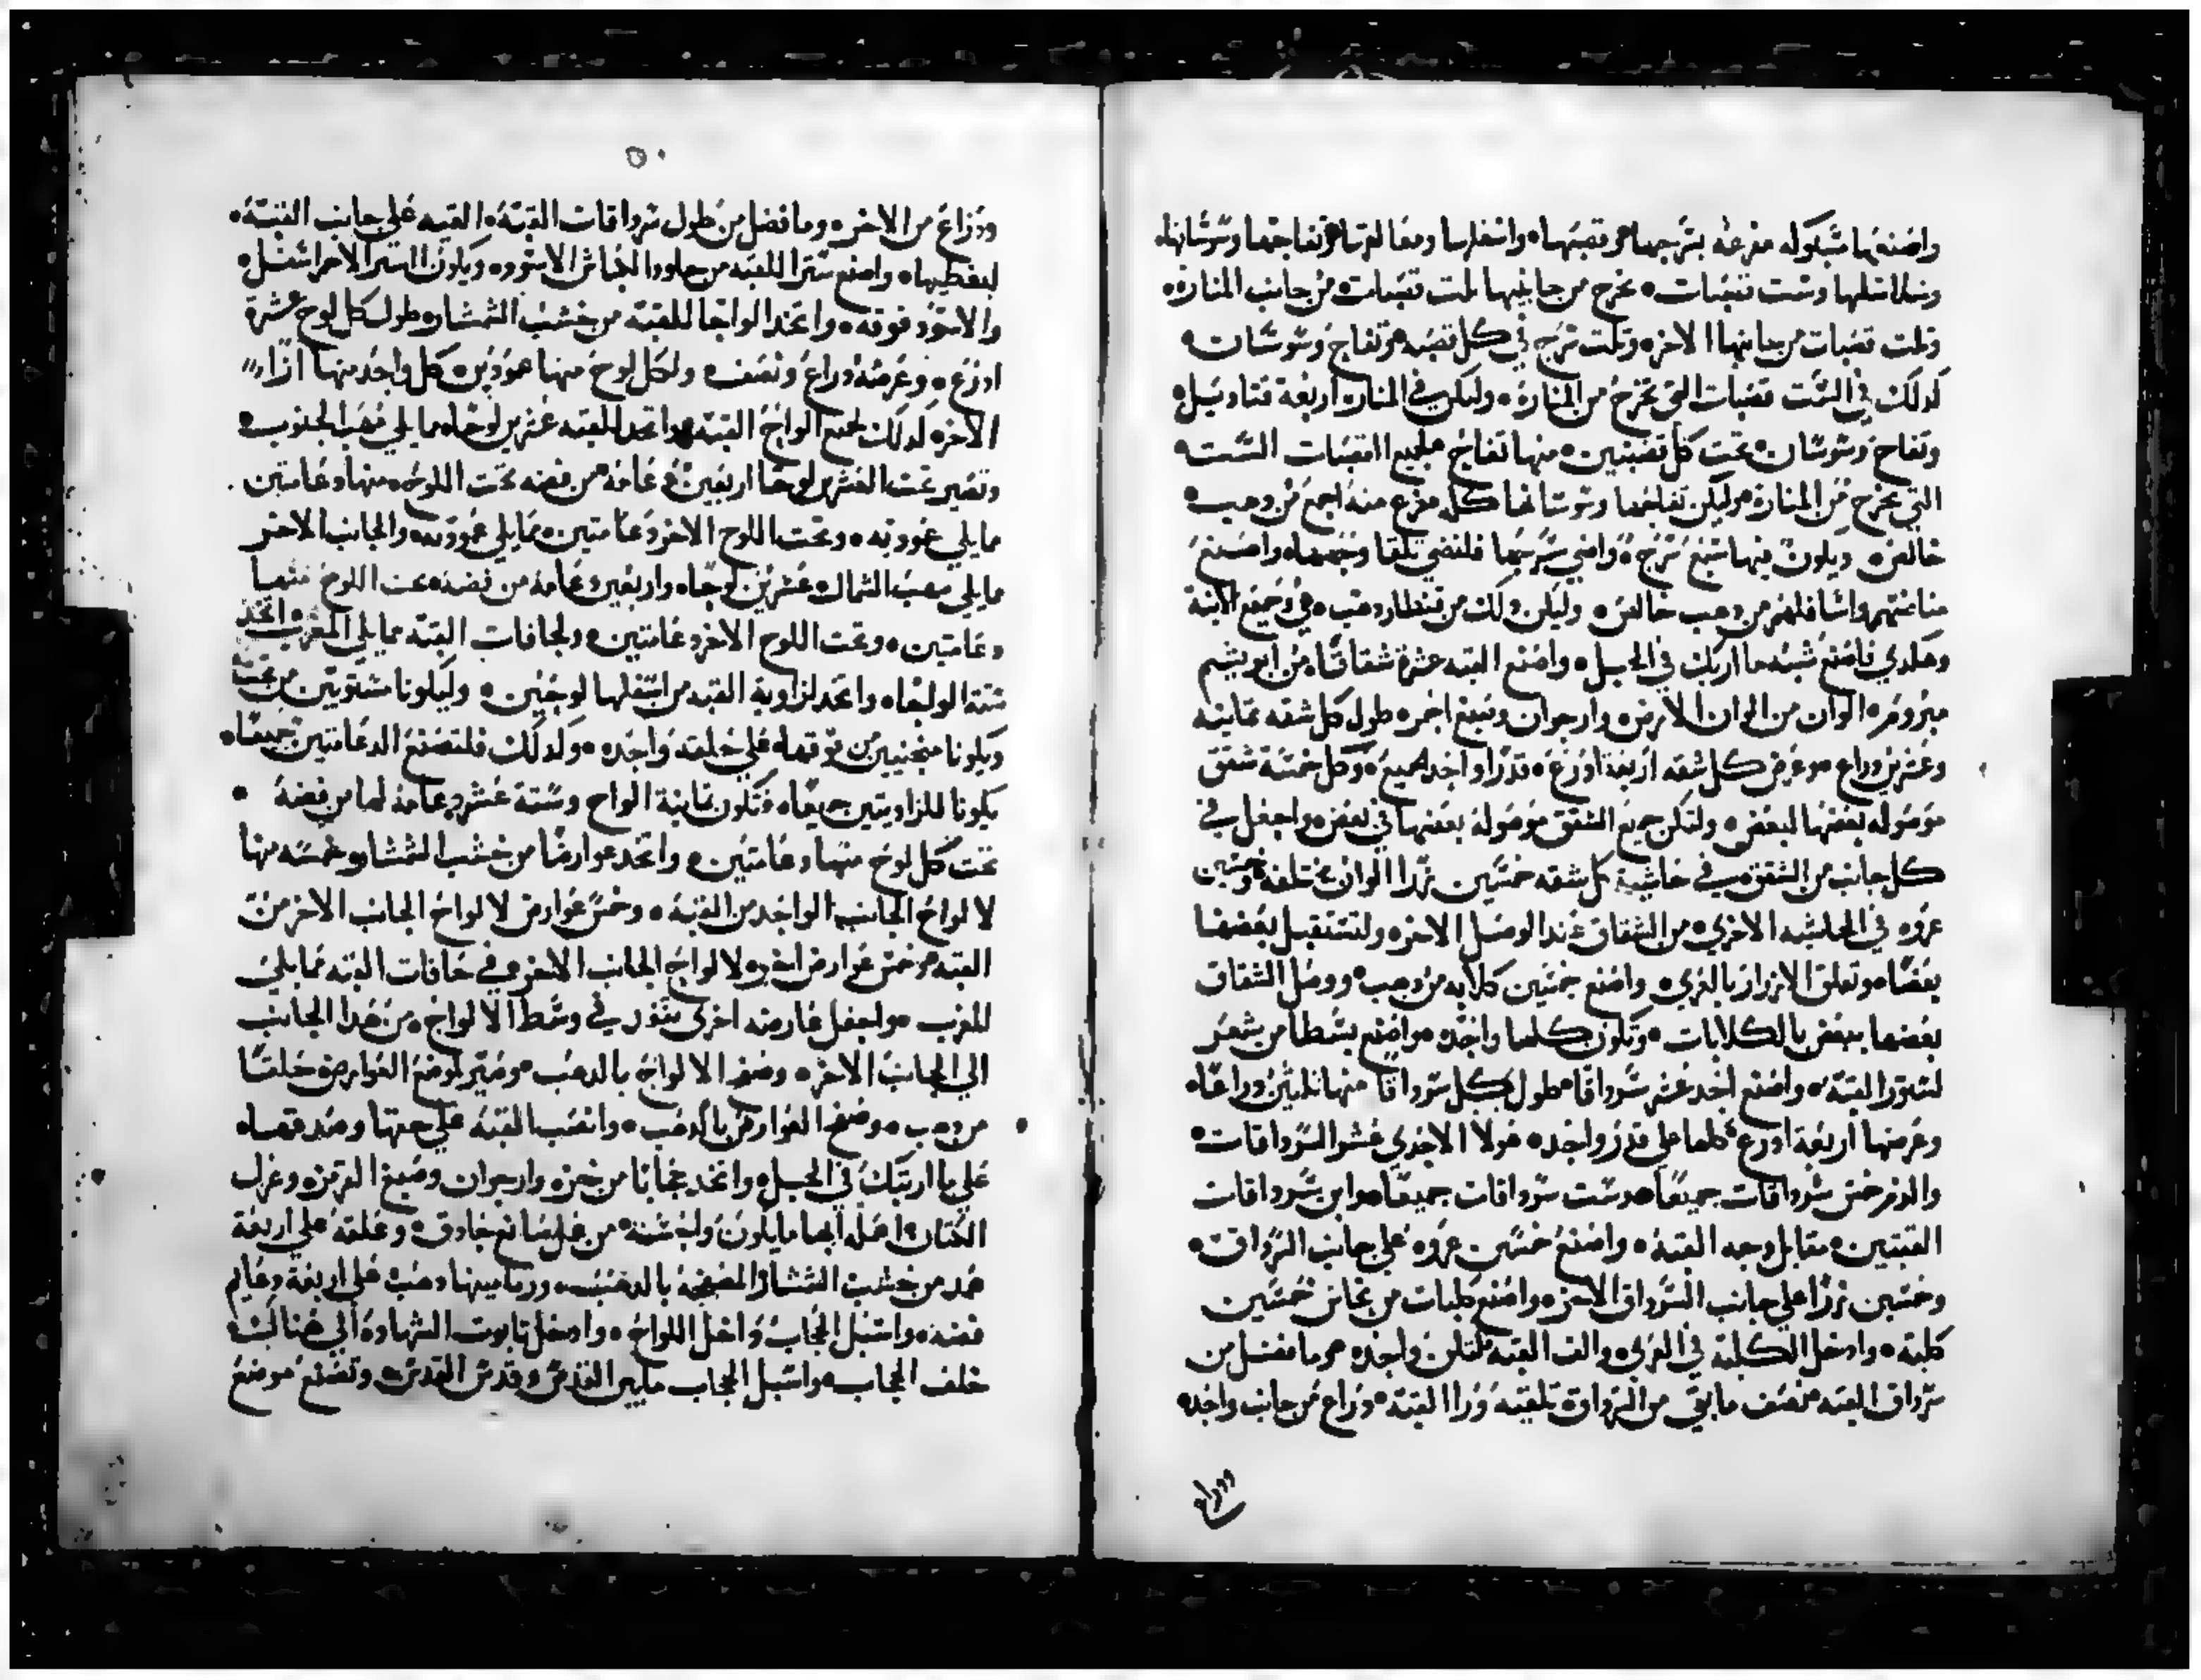 واصنعها مسبوكه مفرغه بترجها وقصبتها واسفلها ومغالقها وتفاجها وسوسانها
وسلاسلها وست قصبات تخرج من جانبيها تلت قصبات من جانب المناره
وتلت قصبات من جانبها الاخر وتلت ترج في كل قصبه وتفاج وسوسان
كدلك في الست قصبات التي تخرج من المناره وليكن في المناره اربعة قناديل
وتفاح وسوسان تحت كل قصبتين منها تفاح لجميع القصبات السته
التي تخرج من المناره وليكن تفاحها وسوسانها كله مفرغ منه اجمع من دهب
خالص ويكون فيها سبع ترج واضي سرجها فلتضي تلقا وجهها واصنع
مناعتهم واسافلهن من دهب خالص وليكن دلك من قنطار دهب هي وجميع الانية
وهكدي فاصنع شبه ما اريك في الجبل واصنع القبه عشرة شقاقا من ابريشم
مبروم الوان من الوان الارض وارجوان وصبغ احمر طول كل شقه تمانيه
وعشرين دراع وعرض كل شقه اربعة ادرع قدرا واحد لجميع وكل خمسة شقق
موصوله بعضها لبعض ولتكن جميع الشقق موصوله بعضها في بعض واجعل في
كل جانب من الشقق في حاشية كل شقه خمسين زرا الوان مختلفه وخمسين
عروه في الحاشيه الاخري من الشقاق عند الوصل الاخر ولتستقبل بعضها
بعضا وتعلق الازرار بالعري واصنع خمسين كلابه من دهب ووصل الشقاق
بعضها ببعض بالكلابات وتكون كلها واحده واصنع بسطا من شعر
لتستر القبه واصنع احد عشر سرداقا طول كل سرداقا منها تلتين دراعا
وعرضها اربعة ادرع كلها علي قدر واحد هولا الاحدي عشر السرداقات
والزم خمس سرداقات جميعا وست سرداقات جميعا وابن سرداقات
القبتين مقابل وجه القبه واصنع خمسين عروه علي جانب السرداق
وخمسين زرا علي جانب السرداق الاخر واصنع كلبات من نحاس خمسين
كلبة وادخل الكلبة في العري والف القبه لتكن واحده وما فضل من
سرداق القبه نصف مابقي من السرداق تلقيه ورا القبه دراع من جانب واحده
ودراع من الاخر وما فضل من طول سرداقات القبه القيه علي جانب القبه
ليغطيها واصنع سترا للقبه من جلود الكباش الاسود ويكون الستر الاحمر اسفل
والاسود فوقه واتخد الواحا للقبه من خشب الشمشار طول كل لوح عشرة
ادرع وعرضه دراع ونصف ولكل لوح منها عمودين كل واحد منها ازا
الاخر كدلك لجميع الواح القبه واتخد للقبه عشرين لوحا مما يلي مهب الجنوب
وتصير تحت العشرين لوحا اربعين دعامه من فضه تحت اللوح منها دعامتين
مايلي عموديه وتحت اللوح الاخر دعامتين مايلي عموديه والجانب الاخر
مايلي مهب الشمال عشرين لوحا واربعين دعامه من فضه تحت اللوح منها
دعامتين وتحت اللوح الاخر دعامتين ولحافات القبه مما يلي المغرب اتخد
ستة الواح واتخد لزاوية القبه من اسفلها لوحين وليكونا مستويين من تحت
ويكونا منحنيين من فوقها علي حلقه واحده وكدلك فلتصنع الدعامتين جميعا
يكونا للزاويتين جميعا فتكون تمانية الواح وستة عشر دعامه لها من فضة
تحت كل لوح منها دعامتين واتخد عوارضا من خشب الشمشار خمسه منها
لالواح الجانب الواحد من القبه وخمس عوارض لالواح الجانب الاخر من
القبه وخمس عوارض اخر لالواح الجانب الاخر في حافات القبه مما يلي
المغرب واجعل عارضه اخري تنفد في وسط الالواح من هدا الجانب
الي الجانب الاخر وصفح الالواح بالدهب وصير لموضع العوارض حلقا
من دهب وصفح العوارض بالدهب وانصب القبه علي جهتها وصدقها
علي ما اريتك في الجبل واتخد حجابا من خز وارجوان وصبغ القرمز وغزل
الكتان اعمله ابها مايكون واحسنه من عمل صانع حادق وعلقه علي اربعة
عمد من خشب الشمشار المصفحه بالدهب ورماميها دهب علي اربعة دعايم
فضه واسبل الحجاب داخل اللواح وادخل تابوت الشهاده الي هنالك
خلف الحجاب واسبل الحجاب مابين القدس وقدس القدس وتصنع موضع